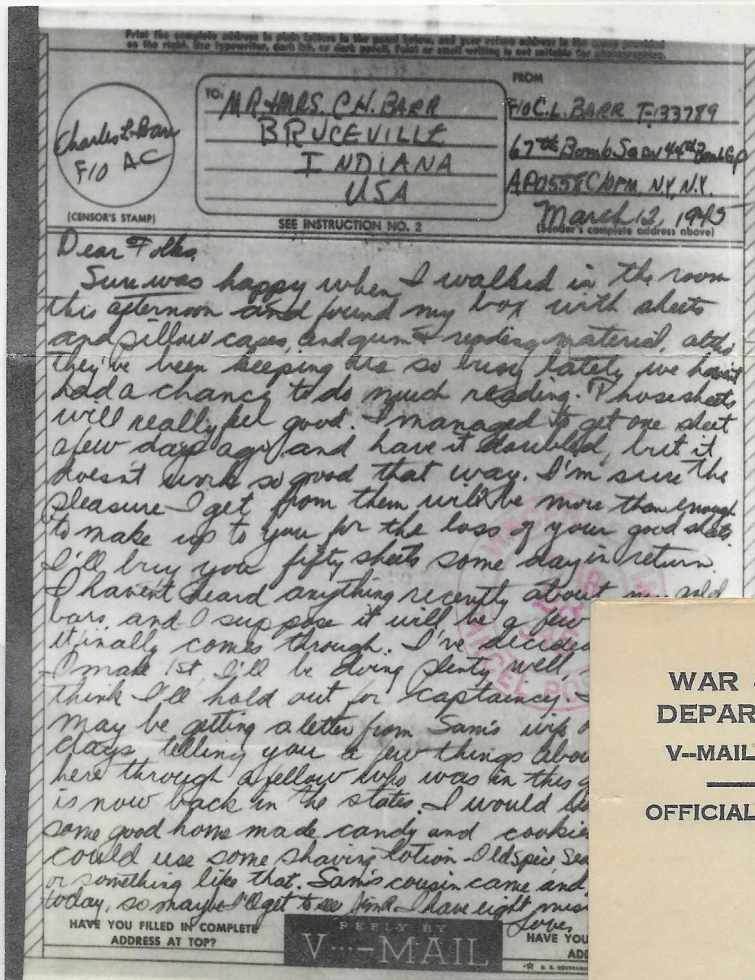 Print the complete address in plain letters in the panel below, and your return address in the space provided
on the right. Use typewriter, dark ink, or dark pencil. Faint or small writing is not suitable for photographing.
Charles L. Barr
F/O AC
(CENSOR'S STAMP)
TO:
MR & MRS. C.H. BARR
BRUCEVILLE
INDIANA
USA
SEE INSTRUCTION NO. 2
FROM
F/O C.L. BARR T-133789
67th Bomb Sqdn 44th Bomb Gp
APO 558 C/O PM, NY, N.Y.
March 12, 1945
(Sender's complete address above)
Dear Folks,
Sure was happy when I walked in the room
this afternoon and found my box with sheets
and pillow cases, and gum & reading material, altho
they've been keeping us so busy lately we haven't
had a chance to do much reading. Those sheets
will really feel good. I managed to get one sheet
a few days ago and have it doubled, but it
doesn't work so good that way. I'm sure the
pleasure I get from them will be more than enough
to make up to you for the loss of your good sheets.
I'll buy you fifty sheets some day in return.
I haven't heard anything recently about my gold
bars, and I suppose it will be a few
it finally comes through. I've decided
I make 1st, I'll be doing plenty well,
think I'll hold out for captaincy.
may be getting a letter from Sam's wife
days telling you a few things about
here through a fellow who was in this
is now back in the states. I would
some good home made candy and cookies
could use some shaving lotion - Old Spice, Sea
or something like that. Sam's cousin came and
today, so maybe I'll get to see I have eight
Love,
HAVE YOU FILLED IN COMPLETE
ADDRESS AT TOP?
REPLY BY
V···—MAIL
HAVE YOU
ADD
WAR
DEPAR
V--MAIL
OFFICIAL